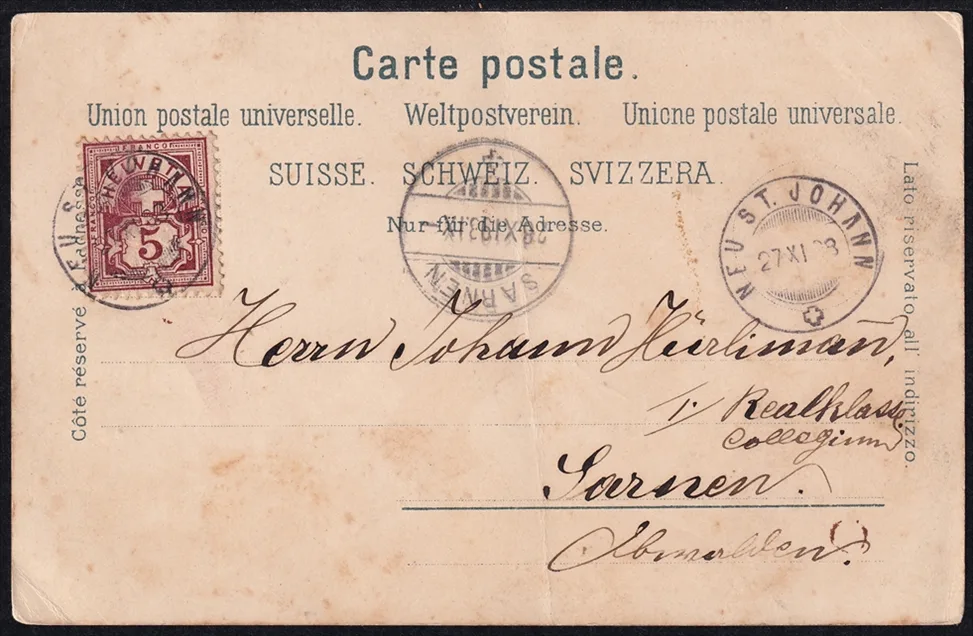 Carte postale.
Union postale universelle. Weltpostverein. Unione postale universale.
SUISSE. SCHWEIZ. SVIZZERA.
Nur für die Adresse.
Côté réservé à
Lato riservato all indirizzo.
FRANCO
5
NEU ST. JOHANN
27 XI 98
SARNEN
Herrn Johann Hürlimañ,
1. Realklasse
Collegium
Sarnen.
Obwalden.